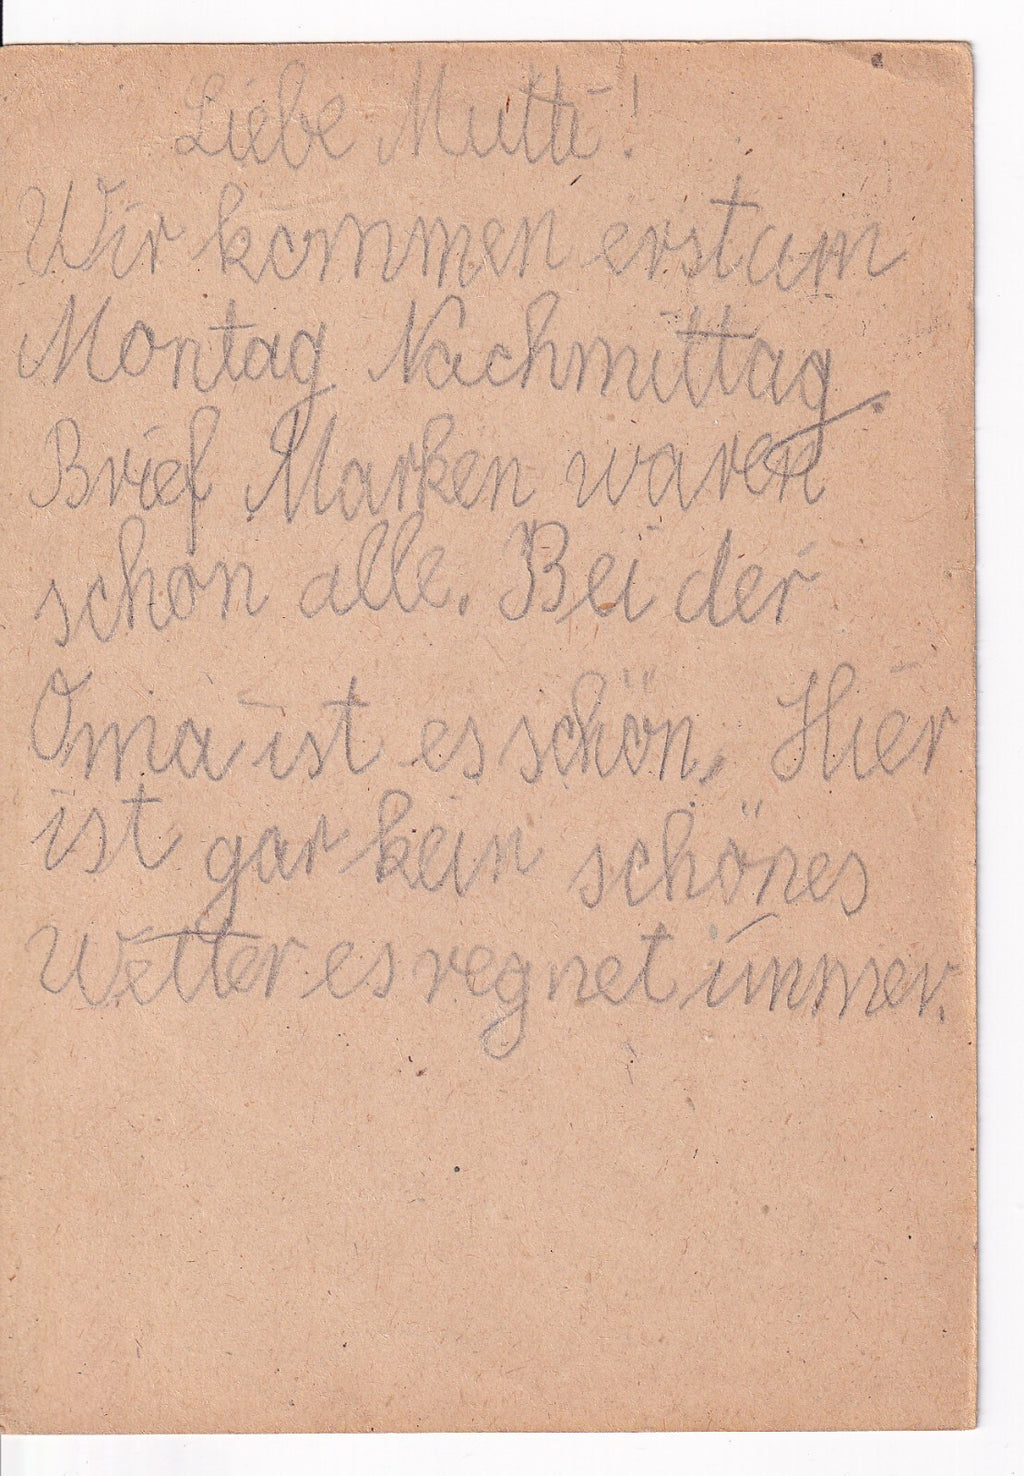 Liebe Mutti!
Wir kommen erst am
Montag Nachmittag.
Brief Marken waren
schon alle. Bei der
Oma ist es schön. Hier
ist gar kein schönes
Wetter es regnet immer.